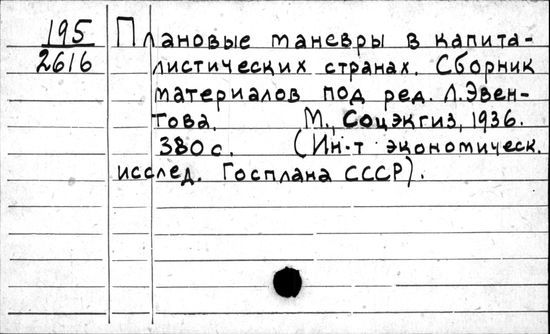 195
2616
Плановые маневры в капита-
листических странах. Сборник
материалов под ред. Л.Эвен-
това. М., Соцэкгиз, 1936.
380 с. (Ин-т экономическ.
исслед. Госплана СССР).